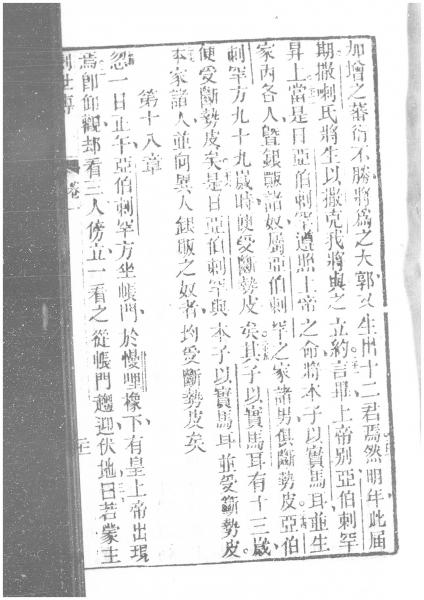 加增之蕃衍不勝將爲之大郭以生出十二君焉然明年此屆
期撒喇氏將生以撒克我將與之立約言畢上帝別亞伯剌罕
昇上當是日亞伯剌罕遵照上帝之命將本子以實馬耳並生
家內各人暨銀販諸奴屬亞伯剌罕之家諸男俱斷勢皮亞伯
剌罕方九十九歲時便受斷勢皮矣其子以實馬耳有十三歲
便受斷勢皮矣是日亞伯剌罕與本子以實馬耳並受斷勢皮
本家諸人並向異人銀販之奴者均受斷勢皮矣
第十八章
忽一日正午亞伯剌罕方坐帳門於幔哩橡下有皇上帝出現
焉卽仰觀却看三人傍立一看之從帳門趨迎伏地曰若蒙主
創世傳 卷一